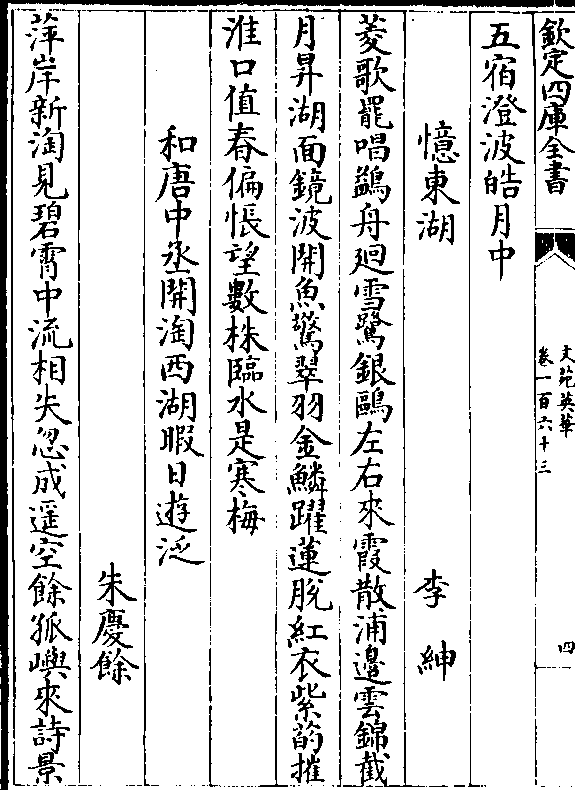 欽定四庫全書
文苑英華
卷一百六十三
四
五宿澄波皓月中
憶東湖
李紳
菱歌罷唱鷁舟廻雪鷺銀鷗左右來霞散浦邊雲錦截
月昇湖面鏡波開魚驚翠羽金鱗躍蓮脫紅衣紫菂摧
淮口值春偏悵望數株臨水是寒梅
和唐中丞開淘西湖暇日遊泛
朱慶餘
萍岸新淘見碧霄中流相失忽成遥空餘孤嶼來詩景